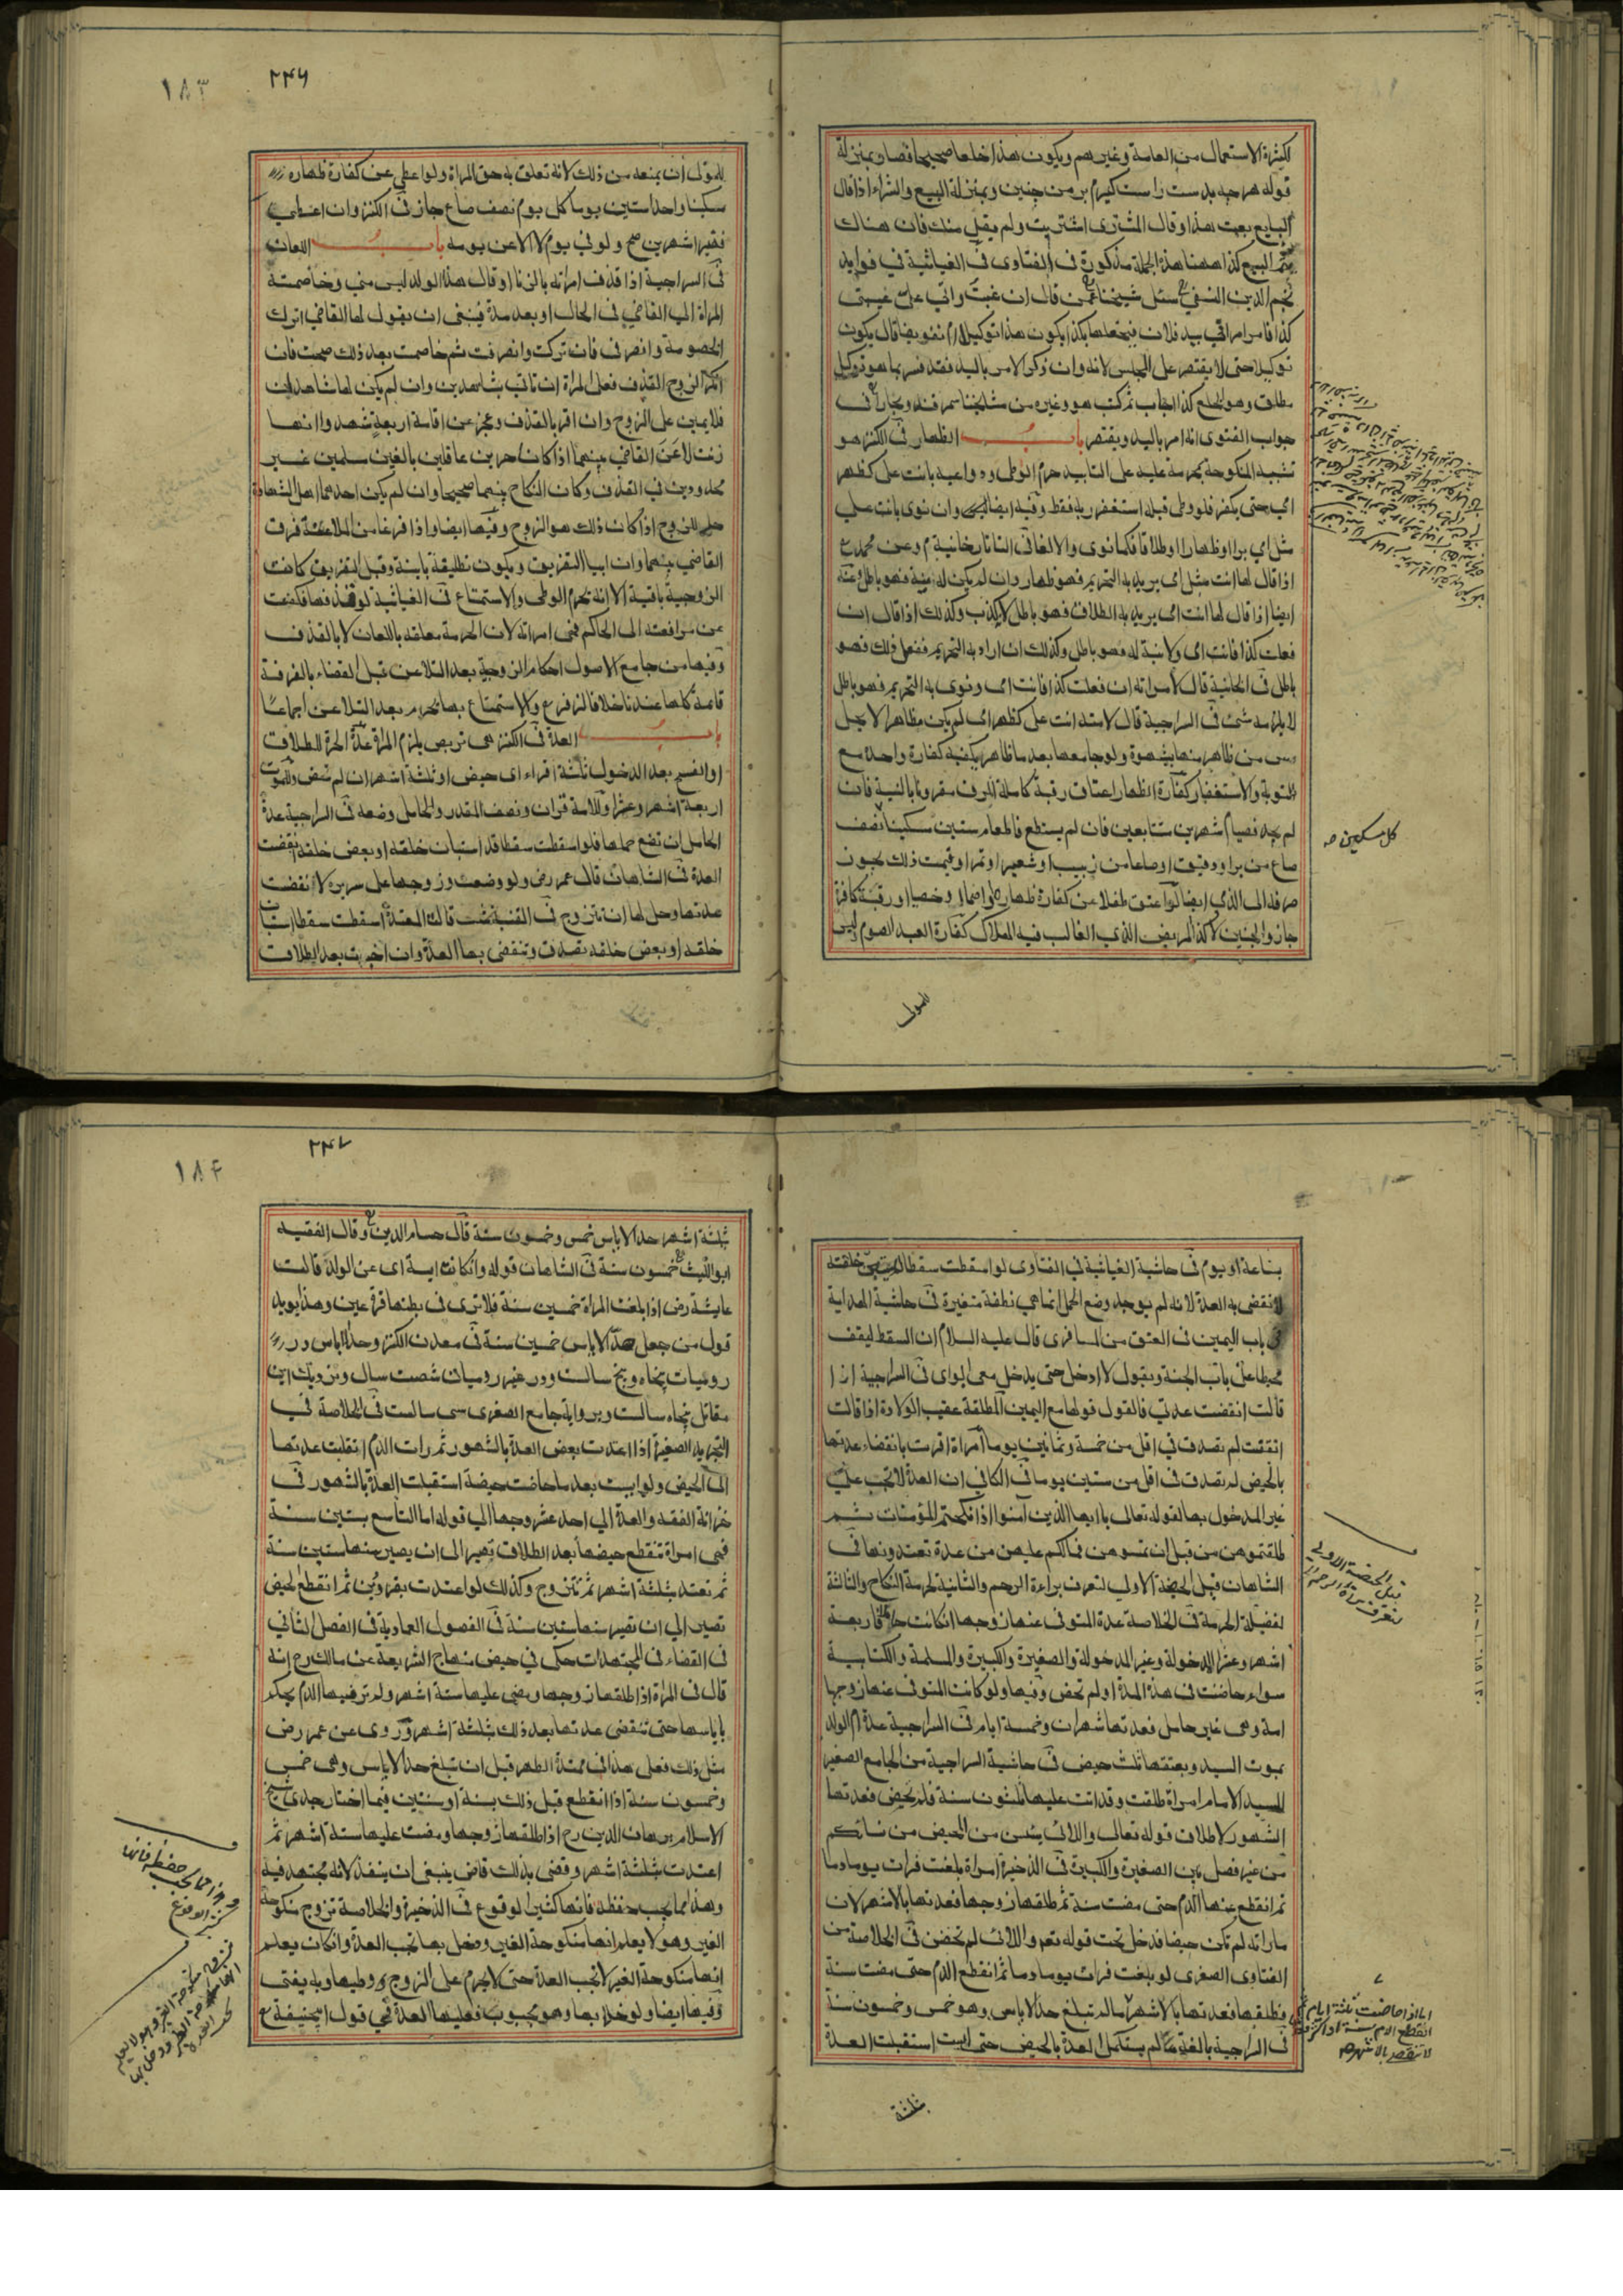 لكثرة الاستعمال من العامة وغيرهم ويكون هذا خلعا صحيحا فصار بمنزلة
قوله هرچه بدست راست كيرم بر من چنين وبمنزلة البيع والشراء اذا قال
البايع بعت هذا وقال المشترى اشتريت ولم يقل منك فان هناك
يتم البيع كذا ههنا هذه الجملة مذكورة فى الفتاوى فى الغياثية في فوايد
نجم الدين النسفي سئل شيخنا عمن قال ان غبت واتي على غيبتى
كذا فامر امراتي بيد فلان فيجعلها بكذا يكون هذا توكيلا ام تفويضا قال يكون
توكيلا حتى لا يقتصر على المجلس لانه وان ذكر الامر باليد فقد فسر بما هو توكيل
مطلق وهو الخلع كذا اجاب ثم كتب هو وغيره من مشايخنا سمرقند وبخارا فى
جواب الفتوى انه امر باليد ويقتصر باب الظهار فى الكنز هو
تشبيه المنكوحة بمحرمة عليه على التابيد حرم الوطى ودواعيه بانت على كظهر
امي حتى يكفر فلو وطى قبله استغفر ربه فقط وفيه ايضا وان نوى بانت علي
مثل امي برا او ظهارا او طلاقا فكما نوى والا لغا فى التاتارخانية م وعن محمد
اذا قال لها انت مثل امى يريد به التحريم فهو ظهار وان لم يكن له نية فهو باطل وعنه
ايضا اذا قال لها انت امى يريد به الطلاق فهو باطل لا يكذب وكذلك اذا قال ان
فعلت كذا فانت امى ولا نية له فهو باطل وكذلك ان اراد به التحريم ففعل ذلك فهو
باطل فى الخانية قال لامراته ان فعلت كذا فانت امى ونوى به التحريم فهو باطل
لا يلزمه شئ فى السراجية قال لامته انت على كظهر امى لم يكن مظاهرا لا يحل
مس من ظاهر منها بشهوة ولو جامعها بعد ما ظاهر يكفيه كفارة واحدة مع
التوبة والاستغفار كفارة الظهار اعتاق رقبة كاملة الرق مقرونا بالنية فان
لم يجد فصيام شهرين متتابعين فان لم يستطع فاطعام ستين مسكينا نصف
صاع من بر او دقيق او صاعا من زبيب او شعير او تمر او قيمت ذلك يجوز
صرفه الى الذمي ايضا لو اعتق طفلا عن كفارة ظهار او خصيا او رقبة كافرة
جاز والجنين لا كذا المريض الذي الغالب فيه الهلاك كفارة العبد الصوم ليس
كل مسكين صح
للمولى
٢٤٦
١٨٣
للمولى ان يمنعه من ذلك لانه تعلق به حق المراة ولو اعطى عن كفارة ظهاره
مسكينا واحدا ستين يوما كل يوم نصف صاع جاز فى الكنز وان اعطى
فقيرا شهرين صح ولو في يوم لا الا عن يومه باب اللعان
فى السراجية اذا قذف امراته بالزنا او قال هذا الولد ليس مني وخاصمته
المراة الى القاضي فى الحال او بعد مدة ينبغى ان يقول لها القاضي اترك
الخصومة وانصرفى فان تركت وانصرفت ثم خاصمت بعد ذلك صحت فان
انكر الزوج القذف فعلى المراة ان تاتي بشاهدين وان لم يكن لها شاهدان
فلا يمين على الزوج وان اقر بالقذف وعجز عن اقامة اربعة شهداء انها
زنت لاعن القاضي بينهما اذا كانا حرين عاقلين بالغين مسلمين غير
محدودين في القذف وكان النكاح بينهما صحيحا وان لم يكن احدهما اهل الشهادة
حد الزوج اذا كان ذلك هو الزوج وفيها ايضا واذا فرغا من الملاعنة فرق
القاضي بينهما وان ابيا التفريق ويكون تطليقة باينة وقبل التفريق كانت
الزوجية باقية الا انه يحرم الوطى والاستمتاع فى الغياثية لو قذفها فكفت
عن مرافعته الى الحاكم فهى امراته لان الحرمة معلقة باللعان لا بالقذف
وفيها من جامع الاصول احكام الزوجية بعد التلاعن قبل القضاء بالفرقة
قائمة كلها عندنا خلافا لزفر والاستمتاع بها يحرم بعد التلاعن اجماعا
باب العدة فى الكنز هى تربص يلزم المراة عدة الحرة للطلاق
او الفسخ بعد الدخول ثلثة اقراء اى حيض او ثلثة اشهر ان لم تحض وللموت
اربعة اشهر وعشر وللامة قران ونصف المقدر وللحامل وضعه فى السراجية عدة
الحامل ان تضع حملها فلو اسقطت سقطا قد استبان خلقه او بعض خلقه انقضت
العدة فى الشاهان قال عمر رض ولو وضعت وزوجها على سريره لانقضت
عدتها وحل لها ان تتزوج فى القنية قالت المعتدة اسقطت سقطا استبان
خلقه او بعض خلقه تصدق وتنقضى بها العدة وان اخبرت بعد الطلاق
بساعة او بيوم فى حاشية الغياثية في الفتاوى لو اسقطت سقطا لم يتبين خلقته
لا تنقضى به العدة لانه لم يوجد وضع الحمل انما هي نطفة متغيرة فى حاشية الهداية
فى باب اليمين فى العتق من المسافرى قال عليه السلام ان السقط ليقف
محبنطا على باب الجنة ويقول لا ادخل حتى يدخل معى ابواى فى السراجية اذا
قالت انقضت عدتي فالقول قولها مع اليمين المطلقة عقيب الولادة اذا قالت
انقضت لم تصدق في اقل من خمسة وثمانين يوما امراة اقرت بانقضاء عدتها
بالحيض لم تصدق فى اقل من ستين يوما فى الكافي ان العدة لا تجب على
غير المدخول بها لقوله تعالى يا ايها الذين آمنوا اذا نكحتم المؤمنات ثم
طلقتموهن من قبل ان تمسوهن فما لكم عليهن من عدة تعتدونها فى
الشاهان قيل الحيضة الاولى لتعرف براءة الرحم والثانية لحرمة النكاح والثالثة
لفضيلة الحرمة فى الخلاصة عدة المتوفى عنها زوجها ان كانت حائلا فاربعة
اشهر وعشر المدخولة وغير المدخولة والصغيرة والكبيرة والمسلمة والكتابية
سواء حاضت فى هذه المدة او لم تحض وفيها ولو كانت المتوفى عنها زوجها
امة وهى غير حامل فعدتها شهران وخمسة ايام فى السراجية عدة ام الولد
بموت السيد وبعتقها ثلث حيض فى حاشية السراجية من الجامع الصغير
للسيد الامام امراة طلقت وقد اتت عليها ثلثون سنة فلم تحيض فعدتها
الشهور لاطلاق قوله تعالى واللائى يئسن من المحيض من نسائكم
من غير فصل بين الصغيرة والكبيرة فى الذخيرة امراة بلغت فرات يوما دما
ثم انقطع عنها الدم حتى مضت سنة ثم طلقها زوجها فعدتها بالاشهر لان
ما راته لم تكن حيضا فدخل تحت قوله تعم واللائى لم تحضن فى الخلاصة من
الفتاوى الصغرى لو بلغت فرات يوما دما ثم انقطع الدم حتى مضت سنة
فطلقها فعدتها بالاشهر ما لم تبلغ حد الاياس وهو خمس وخمسون سنة
فى السراجية بالغة ما لم يستكمل العدة بالحيض حتى ايست استقبلت العدة
قيل الحيضة الاولى
لتعرف براة الرحم
اما اذا حاضت ثلثة ايام ثم
انقطع الدم سنة او اكثر
لا تنقص بالاشهر صح
ثلثة
٢٤٧
١٨٤
ثلثة اشهر حد الاياس خمس وخمسون سنة قال حسام الدين وقال الفقيه
ابو الليث خمسون سنة فى الشاهان قوله وان كانت ايسة اى عن الولد قالت
عايشة رض اذا بلغت المراة خمسين سنة فلا ترى فى بطنها قرة عين وهذا يويد
قول من جعل حد الاياس خمسين سنة فى معدن الكنز وحد اياس در
روميات پنجاه وپنج سالست ودر غير روميات شصت سال ونزديك ابن
مقاتل پنجاه سالست وبرواية جامع الصغرى سى سالست فى الخلاصة فى
التجريد الصغيرة اذا اعتدت بعض العدة بالشهور ثم رات الدم انقلبت عدتها
الى الحيض ولو ايست بعد ما حاضت حيضة استقبلت العدة بالشهور فى
خزانة الفقه والعدة الي احد عشر وجها الي قوله اما التاسع بستين سنة
فهى امراة تنقطع حيضها بعد الطلاق تصير الى ان يصير منها ستين سنة
ثم تعتد بثلثة اشهر ثم تتزوج وكذلك لو اعتدت بقروين ثم انقطع الحيض
تصير الي ان تصير منها ستين سنة فى الفصول العمادية فى الفصل الثاني
فى القضاء فى المجتهدات حكى في حيض منهاج الشريعة عن مالك رح انه
قال فى المراة اذا طلقها زوجها ومضى عليها ستة اشهر ولم تر فيها الدم يحكم
باياسها حتى تنقضى عدتها بعد ذلك بثلثة اشهر وروى عن عمر رض
مثل ذلك فعلى هذا في ممتدة الطهر قبل ان تبلغ حد الاياس وهى خمس
وخمسون سنة اذا انقطع قبل ذلك بسنة او سنتين فيما اختار جدى شيخ
الاسلام برهان الدين رح اذا طلقها زوجها ومضت عليها ستة اشهر ثم
اعتدت بثلثة اشهر وقضى بذلك قاض ينبغى ان ينفذ لانه مجتهد فيه
وهذا مما يجب حفظه فانها كثير الوقوع فى الذخيرة والخلاصة تزوج منكوحة
الغير وهو لا يعلم انها منكوحة الغير ودخل بها تجب العدة وان كان يعلم
انها منكوحة الغير لا تجب العدة حتى لا يحرم على الزوج وطيها وبه يفتى
وفيها ايضا ولو خلا بها وهو مجبوب فعليها العدة في قول ابيحنيفة
وهذا مما يجب حفظه فانها
كثير الوقوع